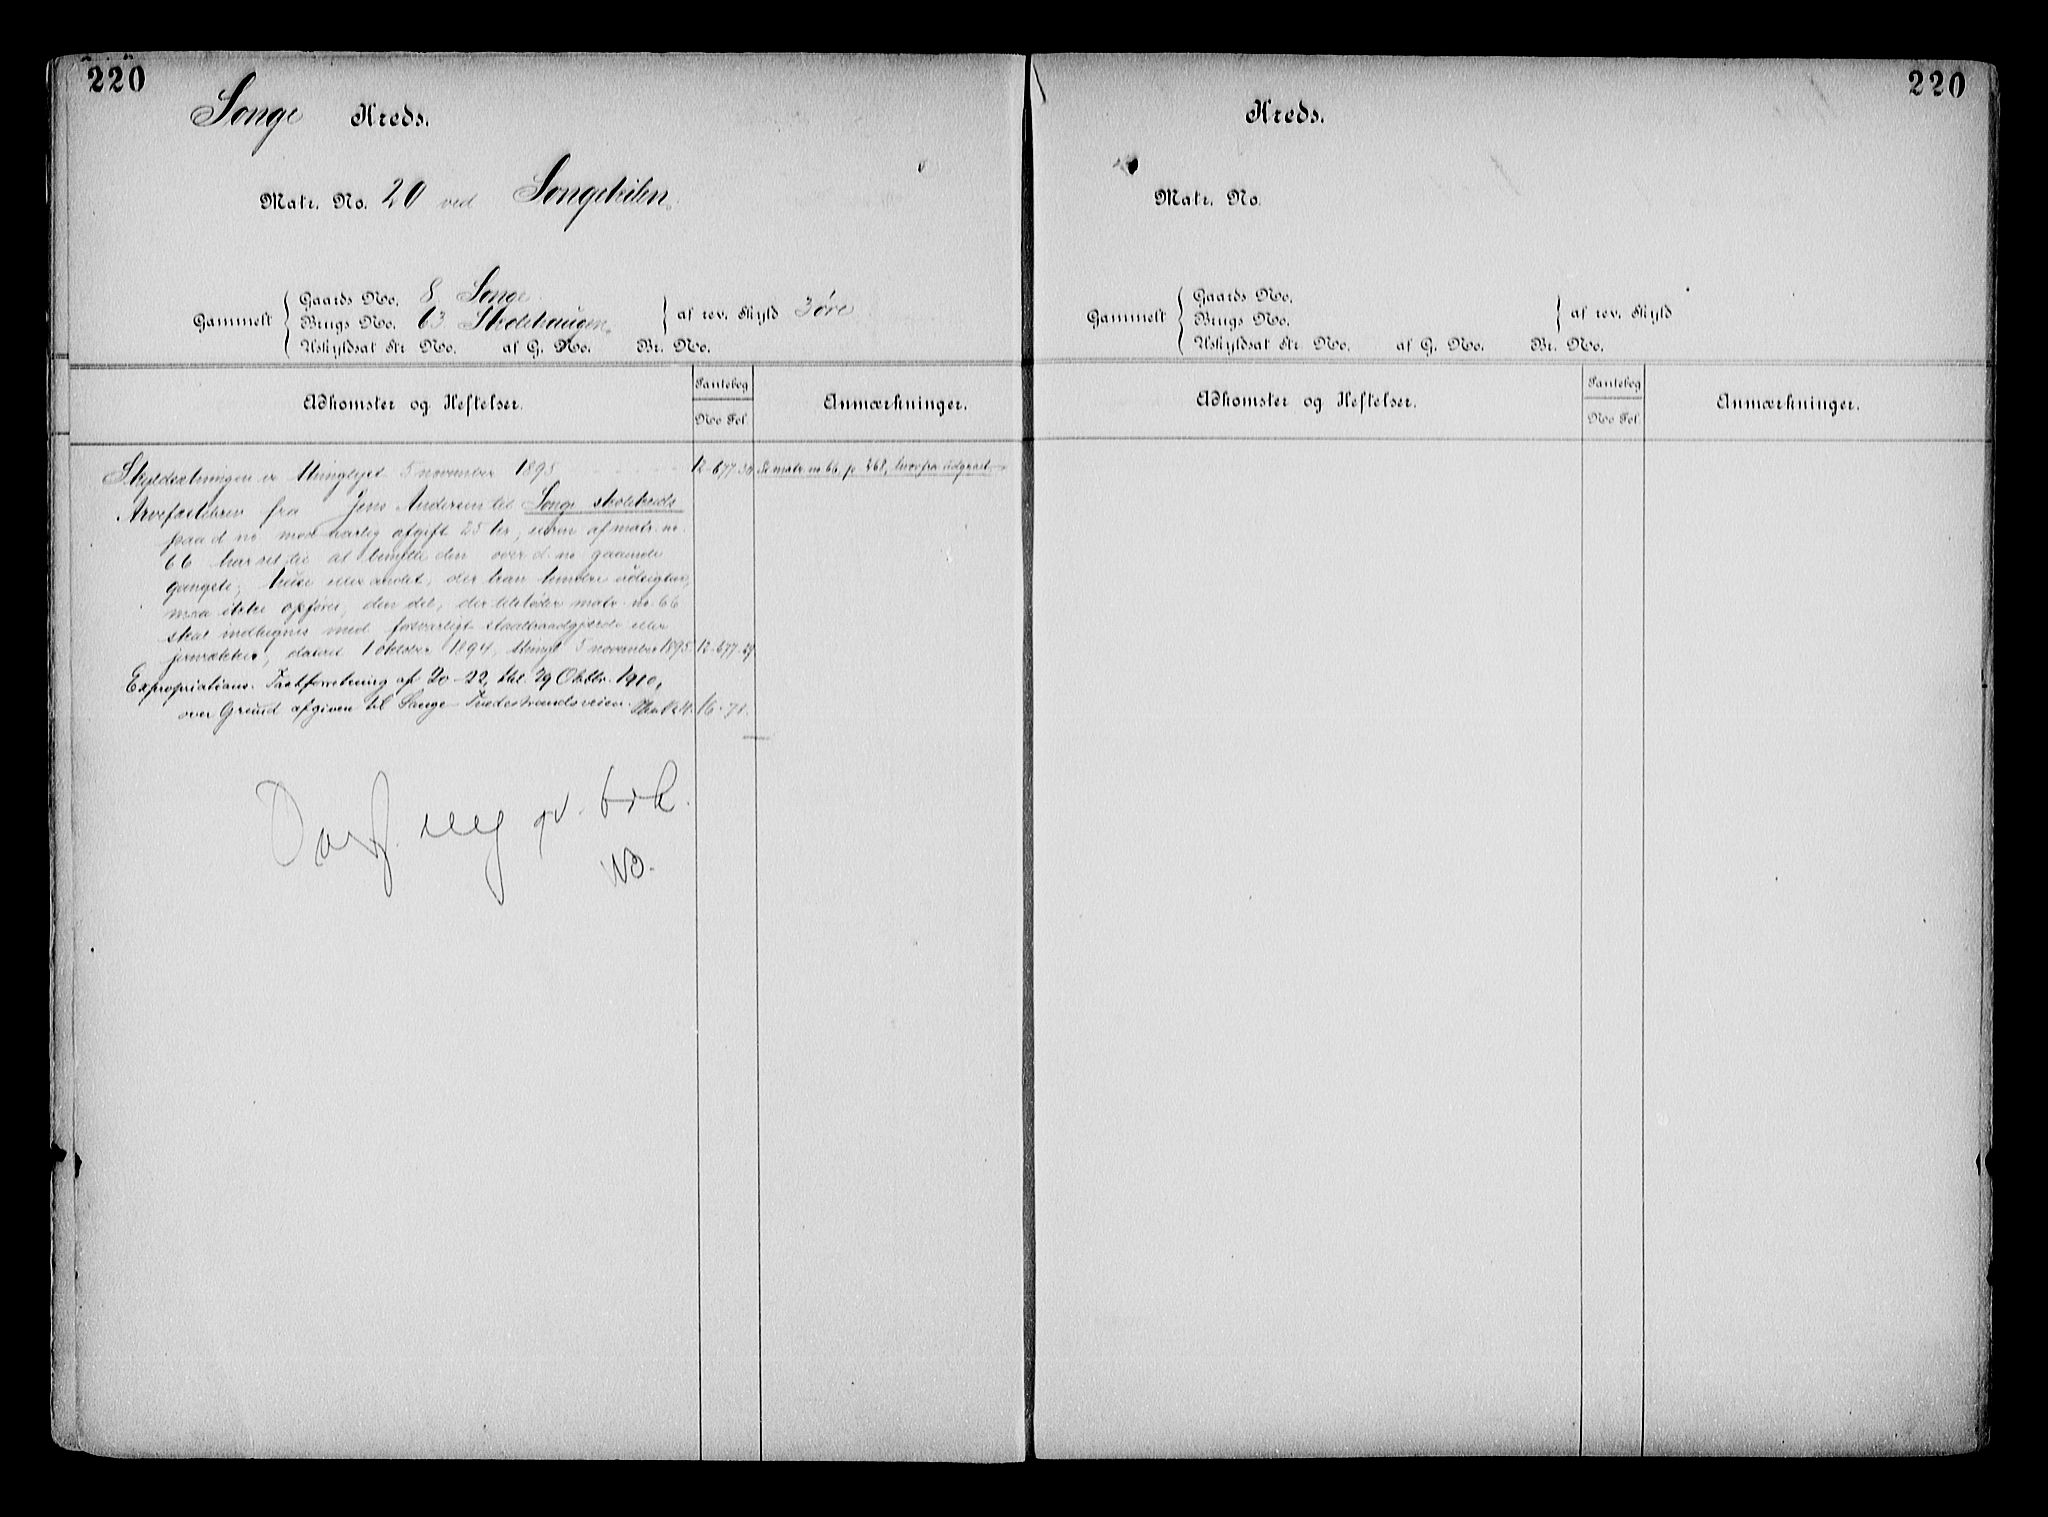 220
Songe Kreds.
Matr. No. 20 ved Songekilen.
Gaards No. 8 Songe
Gammelt Brugs No. 63 Skolehaugen. af rev. Skyld 3 øre
Uskyldsat Str. No. af G. No. Br. No.
Adkomster og Heftelser. Pantebog No Fol. Anmærkninger.
Skyldsætningen er thinglyst 5 november 1895 12-677.30 Se matr. no 66 p. 268, hvorfra udgaaet
Arvefæstebrev fra Jens Andersen til Songe skolekreds
paa d. no. mod aarlig afgift 25 kr, eieren af matr. no.
66 har ret til at benytte den over d. no gaaende
gangsti; huse eller andet, der kan hindre udsigten,
maa ikke opføres, den del, der tilstøder matr. no. 66
skal indhegnes med forsvarligt stadtraadgjærde eller
jernrækker, dateret 1 oktober 1894, thingl. 5 november 1895 12-677.29
Expropriations Takstforretning af 20-22, thl. 29 Oktbr. 1910,
over Grund afgiven til Songe-Tvedestrandsveien. 16-71.
ny gr. brk.
NB.
220
Kreds.
Matr. No.
Gaards No.
Gammelt Brugs No. af rev. Skyld
Uskyldsat Str. No. af G. No. Br. No.
Adkomster og Heftelser. Pantebog No Fol. Anmærkninger.